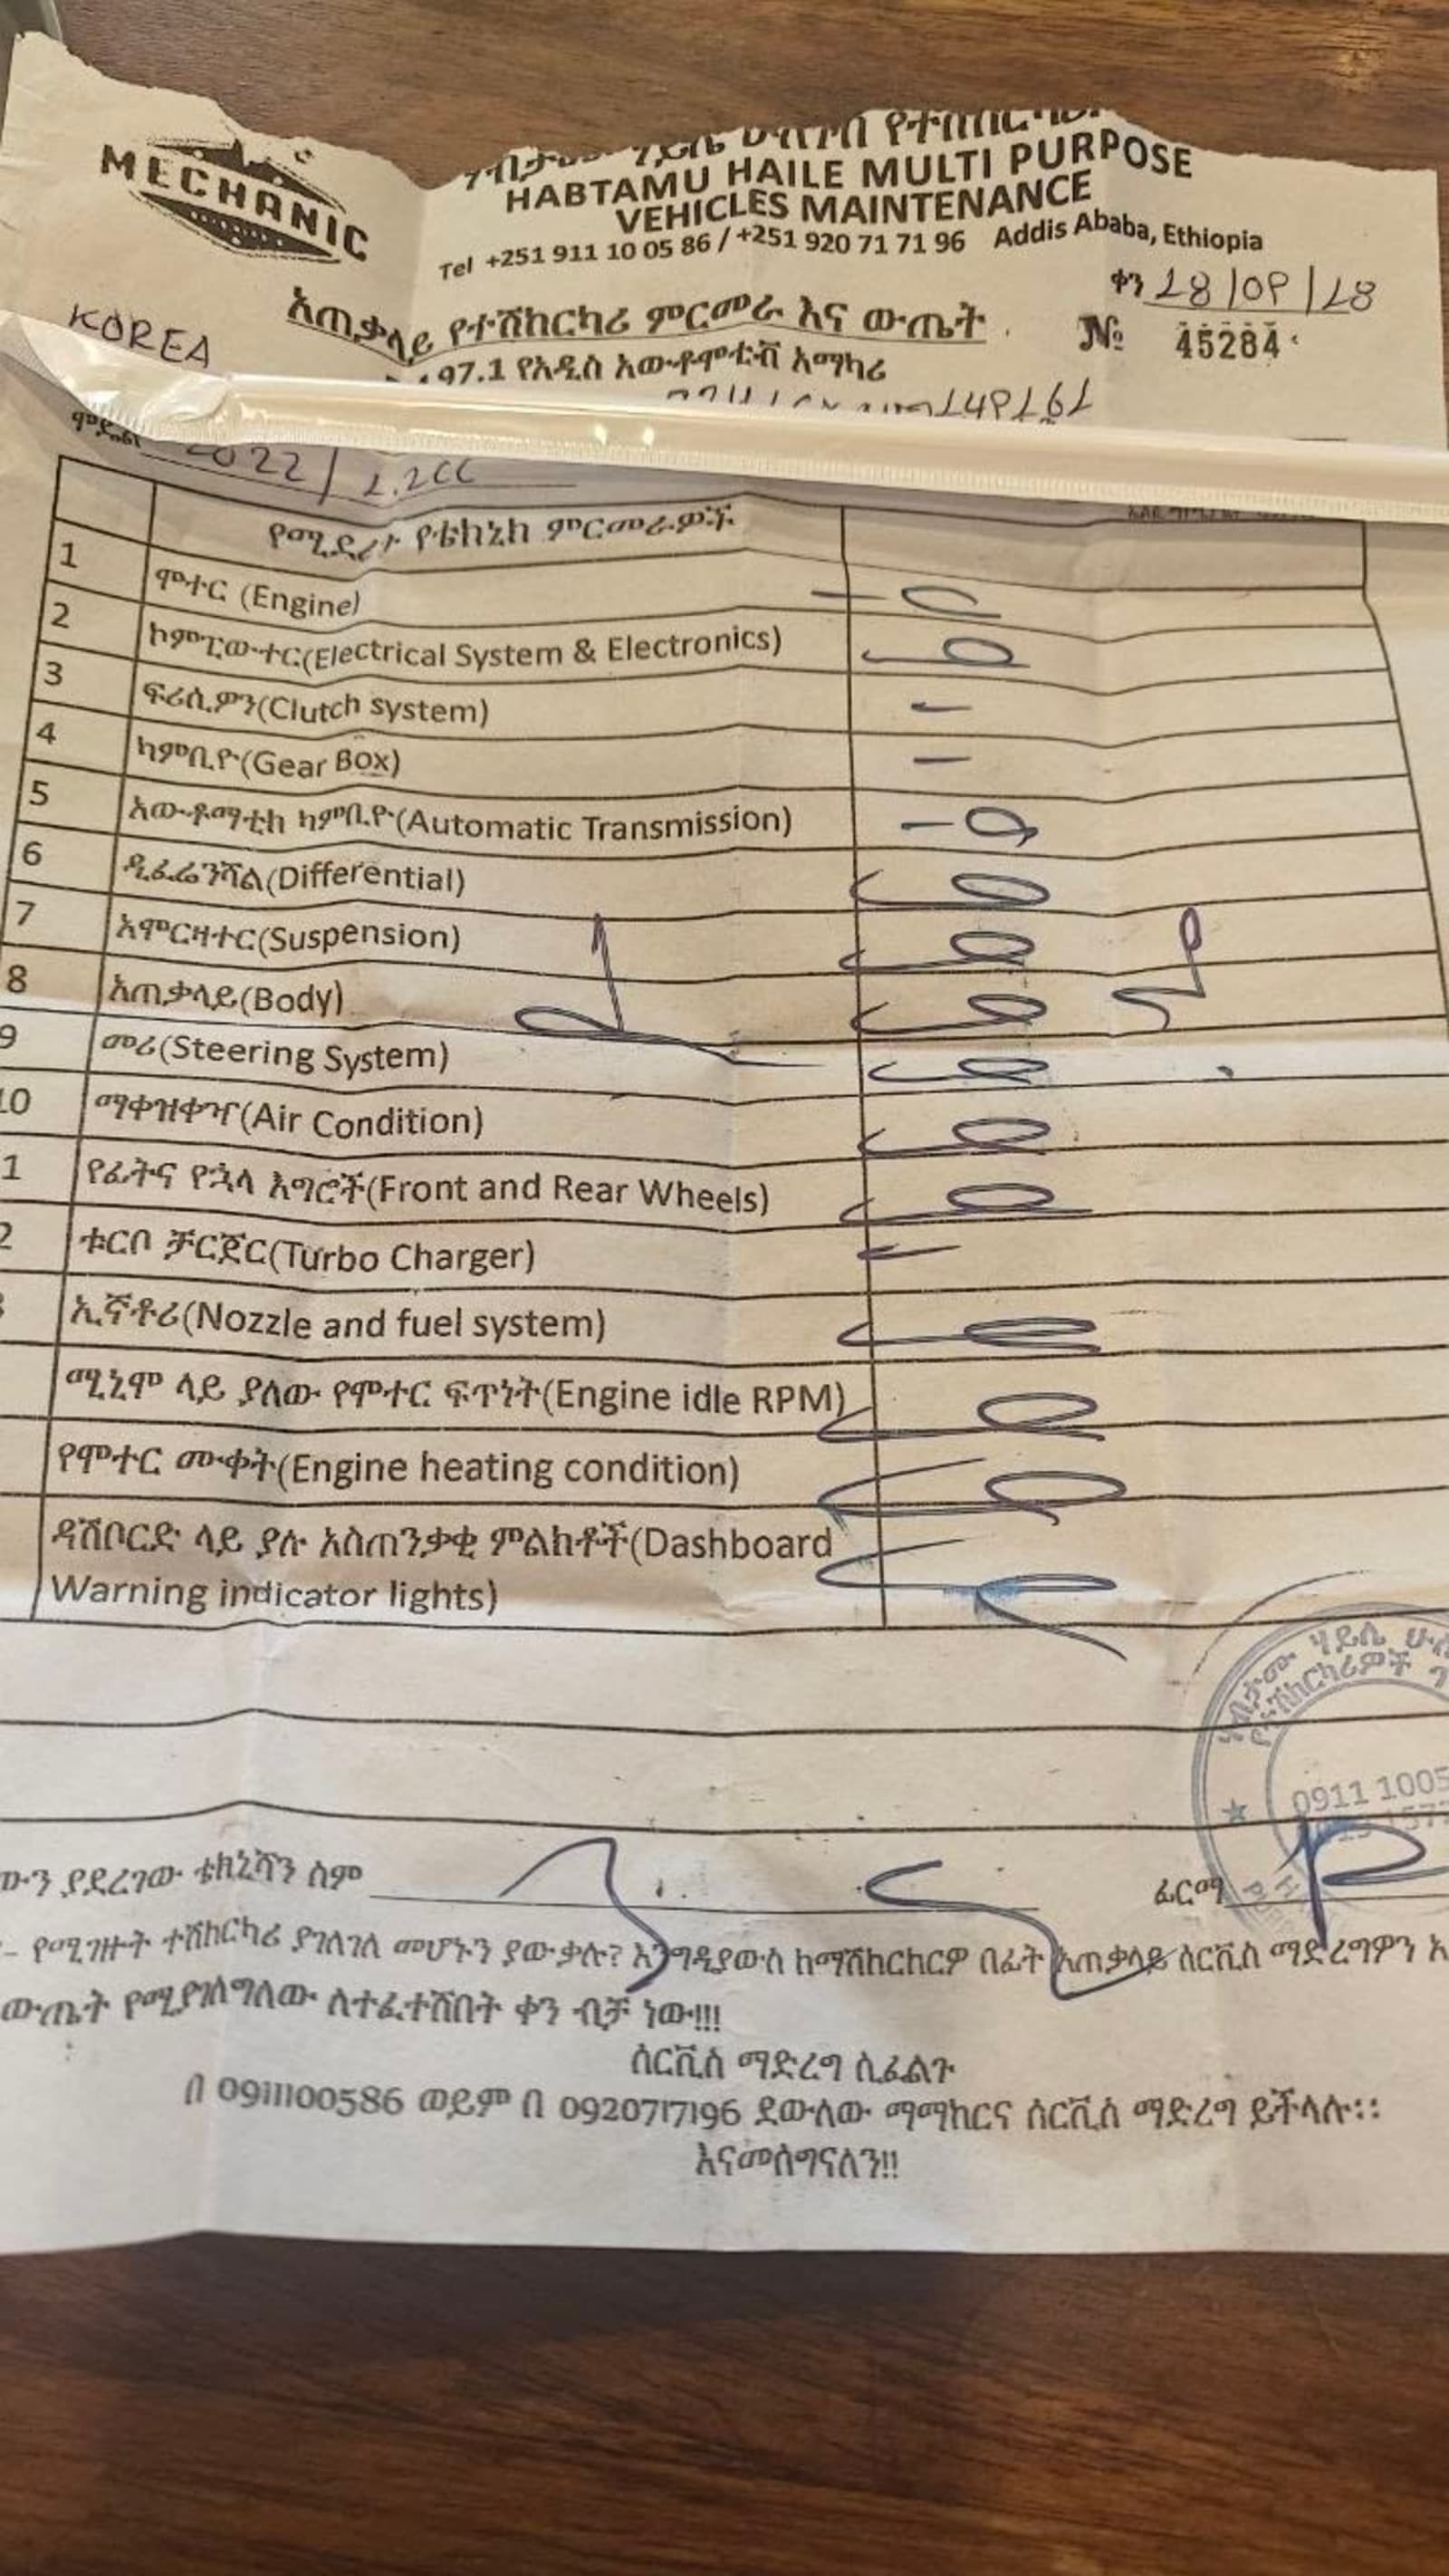 MECHANIC
HABTAMU HAILE MULTI PURPOSE
VEHICLES MAINTENANCE
Tel +251 911 10 05 86 / +251 920 71 71 96 Addis Ababa, Ethiopia
ቀን
አጠቃላይ የተሽከርካሪ ምርመራ እና ውጤት
№ 45284
KOREA
97.1 የአዲስ አውቶሞቲቭ አማካሪ
ሞዴል 2022 / 2.2CC
የሚደረጉ የቴክኒክ ምርመራዎች
1 ሞተር (Engine)
2 ኮምፒውተር(Electrical System & Electronics)
3 ፍሪሲዎን(Clutch system)
4 ካምቢዮ(Gear Box)
5 አውቶማቲክ ካምቢዮ(Automatic Transmission)
6 ዲፈሬንሻል(Differential)
7 አሞርዛተር(Suspension)
8 አጠቃላይ(Body)
9 መሪ(Steering System)
10 ማቀዝቀዣ(Air Condition)
1 የፊትና የኋላ እግሮች(Front and Rear Wheels)
2 ቱርቦ ቻርጀር(Turbo Charger)
3 ኢኛቶሪ(Nozzle and fuel system)
ሚኒሞ ላይ ያለው የሞተር ፍጥነት(Engine idle RPM)
የሞተር ሙቀት(Engine heating condition)
ዳሽቦርድ ላይ ያሉ አስጠንቃቂ ምልክቶች(Dashboard
Warning indicator lights)
ሃብታሙ ሃይሌ ሁለ
የተሽከርካሪዎች ጥ
0911 1005
ውን ያደረገው ቴክኒሻን ስም
ፊርማ
- የሚገዙት ተሽከርካሪ ያገለገለ መሆኑን ያውቃሉ? እንግዲያውስ ከማሽከርከርዎ በፊት አጠቃላይ ሰርቪስ ማድረግዎን አ
ውጤት የሚያገለግለው ለተፈተሸበት ቀን ብቻ ነው!!!
ሰርቪስ ማድረግ ሲፈልጉ
በ 0911100586 ወይም በ 0920717196 ደውለው ማማከርና ሰርቪስ ማድረግ ይችላሉ፡፡
እናመሰግናለን!!